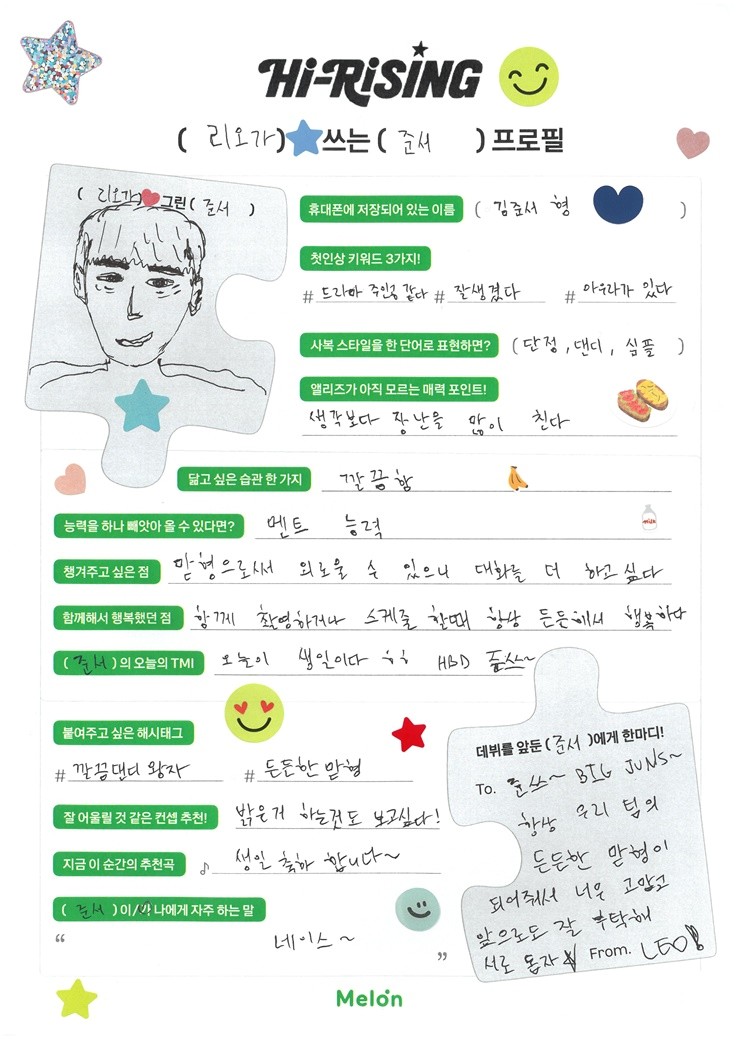 Hi-RiSiNG
( 리오가) 쓰는 ( 준서 ) 프로필
( 리오가) 그린 ( 준서 )
휴대폰에 저장되어 있는 이름 ( 김준서 형 )
첫인상 키워드 3가지!
# 드라마 주인공 같다 # 잘생겼다 # 아우라가 있다
사복 스타일을 한 단어로 표현하면? ( 단정, 댄디, 심플 )
앨리즈가 아직 모르는 매력 포인트!
생각보다 장난을 많이 친다
닮고 싶은 습관 한 가지 깔끔함
능력을 하나 빼앗아 올 수 있다면? 멘트 능력
milk
챙겨주고 싶은 점 맏형으로써 외로울 수 있으니 대화를 더 하고싶다
함께해서 행복했던 점 함께 촬영하거나 스케줄 할때 항상 든든해서 행복하다
( 준서 ) 의 오늘의 TMI 오늘이 생일이다 ㅎㅎ HBD 쭌쓰~
붙여주고 싶은 해시태그
# 깔끔댄디 왕자 # 든든한 맏형
잘 어울릴 것 같은 컨셉 추천! 밝은거 하는것도 보고싶다!
지금 이 순간의 추천곡 ♪ 생일 축하 합니다~
( 준서 ) 이/가 나에게 자주 하는 말
“ 네이스~ ”
데뷔를 앞둔 ( 준서 )에게 한마디!
To. 쭌쓰~ BIG JUNS~
항상 우리 팀의
든든한 맏형이
되어줘서 너무 고맙고
앞으로도 잘 부탁해
서로 돕자 From. LEO
Melon